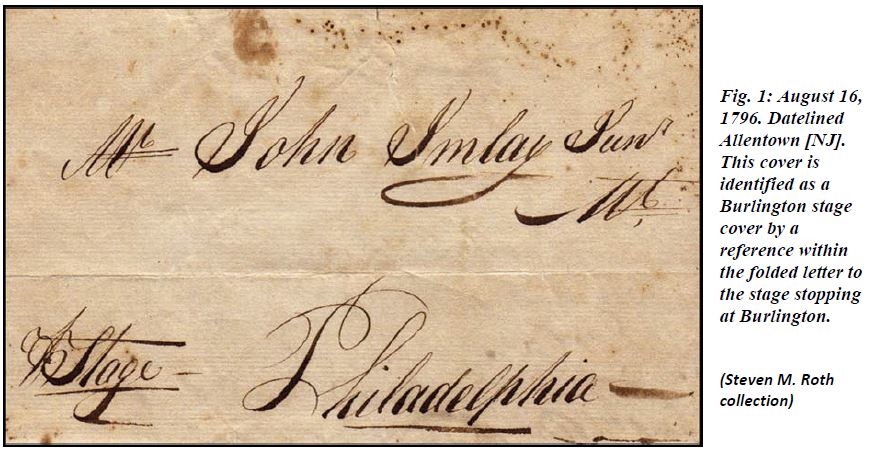 Mr John Imlay Junr
Mt
⅌ Stage
Philadelphia
Fig. 1: August 16,
1796. Datelined
Allentown [NJ].
This cover is
identified as a
Burlington stage
cover by a
reference within
the folded letter to
the stage stopping
at Burlington.
(Steven M. Roth
collection)